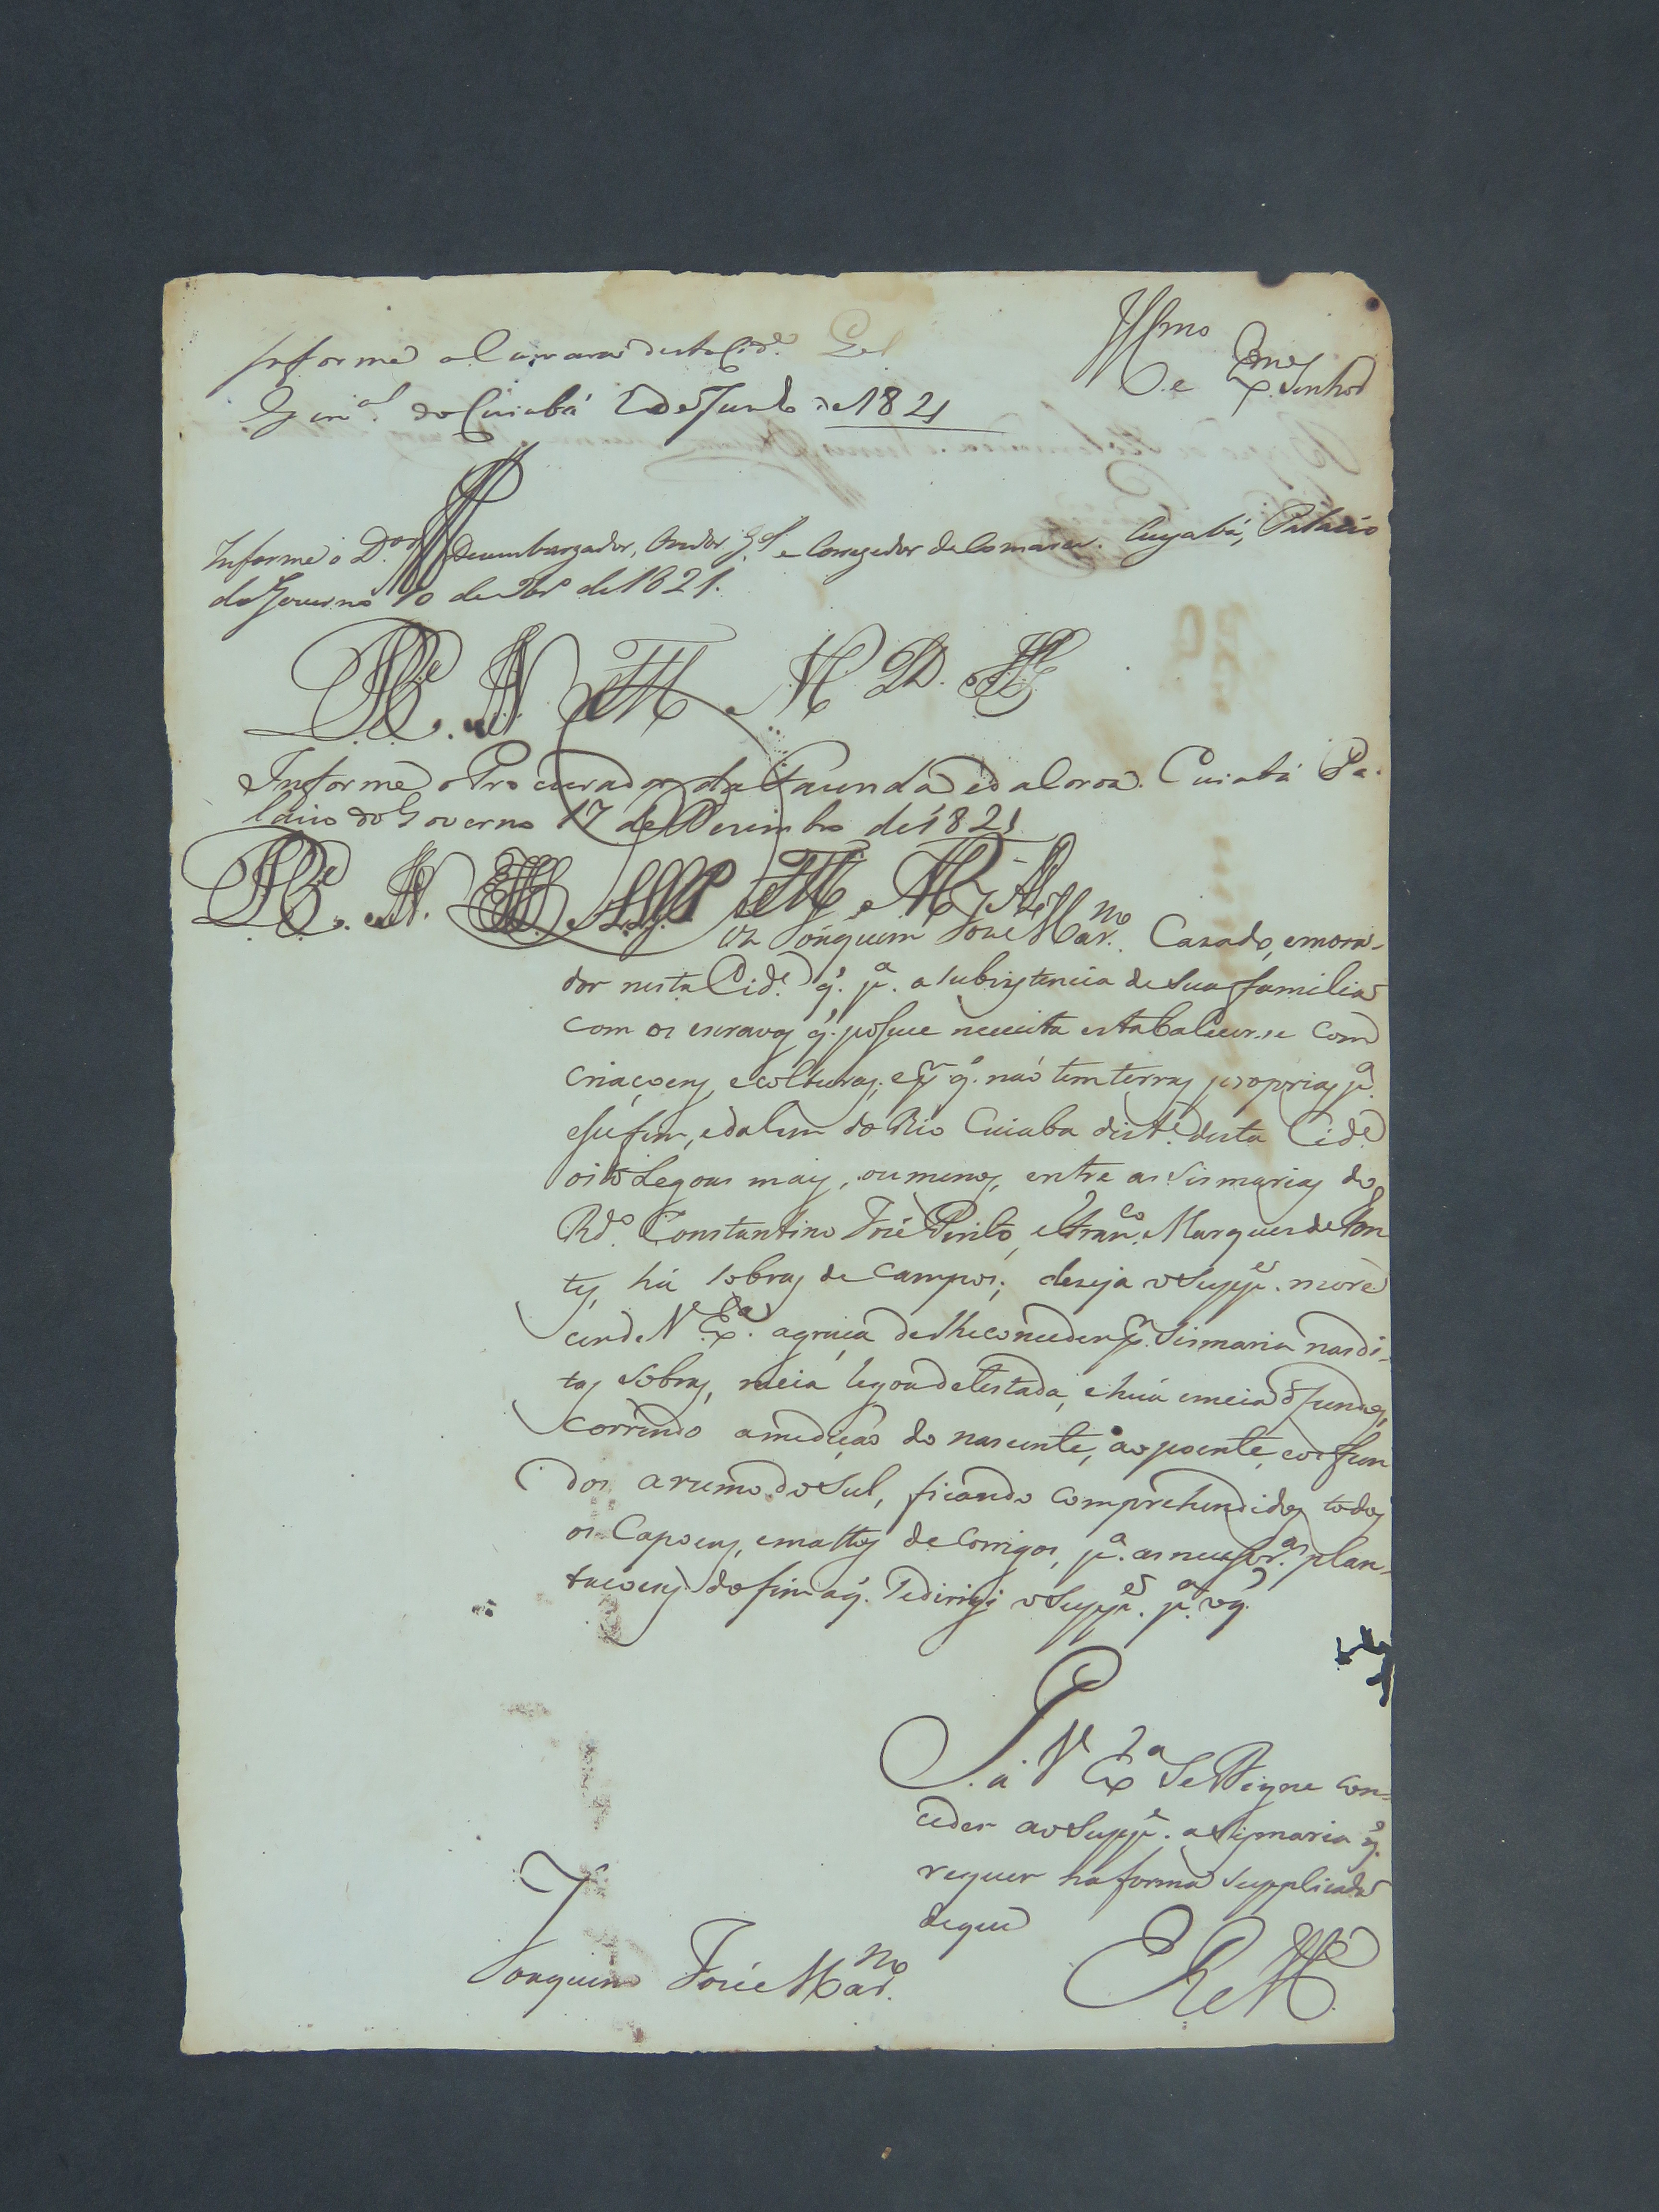 Illmo e Exmo Senhor
Informe a Camara desta Cid.e
Gin.al do Cuiabá 2 de Junho de 1821
Informe o D.or Desembargador, Ouvidor G.al e Corregedor da Comarca. Cuyabá, Palacio
do Governo 10 de 9br.o de 1821.
Informe o Procurador da Fazenda e da Coroa. Cuiabá Pa-
lacio do Governo 17 de Dezembro de 1821
Diz Joaquim José Mar.no Cazado, e mora-
dor nesta Cid.e q̃. p.a a subsistencia de sua familia
com os escravos q̃. possue necessita estabalecer-se com
criaçoens, e colturas; e p.r q̃. não tem terras proprias p.a
esse fim, e dalem do Rio Cuiaba dist.e desta Cid.e
oito Legoas mais, ou menos, entre as Sismarias do
Rd.o Constantino José Pinto, e Fran.co Marques de Fon
tes, há sobras de campos; deseja o Supp.e mere
cer de V Ex.a a graça de lhe conceder p.r Sismaria nas di-
tas sobras, meia legoa de testada, e huã e meia d fundos,
correndo a medição do nascente, ao poente, e os fun
dos a rumo do Sul, ficando comprehendidos todos
os Capoens, e mattos de Corrigos, p.a as necessr.as plan-
taçoens do fim a q̃. se dirigi o Supp.e p.a o q̃.
P. a V Ex.a Se Digne con-
ceder ao Supp.e a Sismaria q̃.
requer na forma Supplicada
de que
E R M.ce
Joaquim José Mar.no